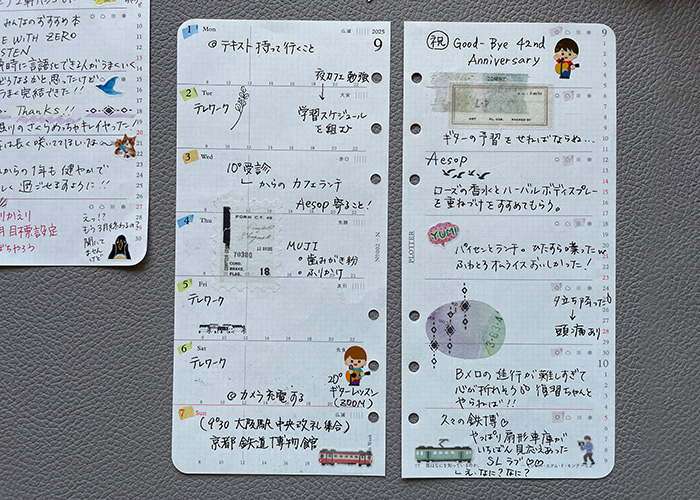 みんなのおすすめ本
E WITH ZERO
STEN
瞬時に言語化できる人がうまくいく。
どうなるかと思ったけど
うまく完結できた!!
Thanks!!
川のさくらめっちゃキレイやったー!
は長く咲いててほしいな〜
からの1年も健やかで
しく過ごせますように!!
りかえり
月目標設定
ぼちやろう
えっ!?
もう3月終わるの?
聞いて
ませんけど
1 Mon 仏滅 2025
9
@テキスト持って行くこと
夜カフェ勉強
8 10 12 14 16 18 20 22
2 Tue 大安
テレワーク
学習スケジュール
を組む
3 Wed 赤口
10°受診
からの カフェランチ
Aesop寄ること!
4 Thu 先勝
FORM CT.
70300
CORD.
BRAKE.
FLAG.
18
MUJI
歯みがき粉
ふりかけ
5 Fri 友引
テレワーク
6 Sat 先負
テレワーク
20°
ギターレッスン
(ZOOM)
@カメラ充電する
7 Sun 仏滅
(9°30 大阪駅 中央改札集合)
京都鉄道博物館
Week
PLOTTER
9
祝 Good-Bye 42nd
Anniversary
ギターの予習をせねばならぬ…
Aesop
ローズの香水とハーバルボディスプレー
を重ねづけをすすめてもらう。
YUM!
パイセンとランチ。ひたすら喋ったw
ふわとろオムライスおいしかった!
夕立ち降った
↓
頭痛あり
10
Bメロの進行が難しすぎて
心が折れそう 復習ちゃんと
やらねば!!
久々の鉄博♡
やっぱり扇形車庫が
いちばん見応えあった
SLラブ♡♡
え、なに?なに?